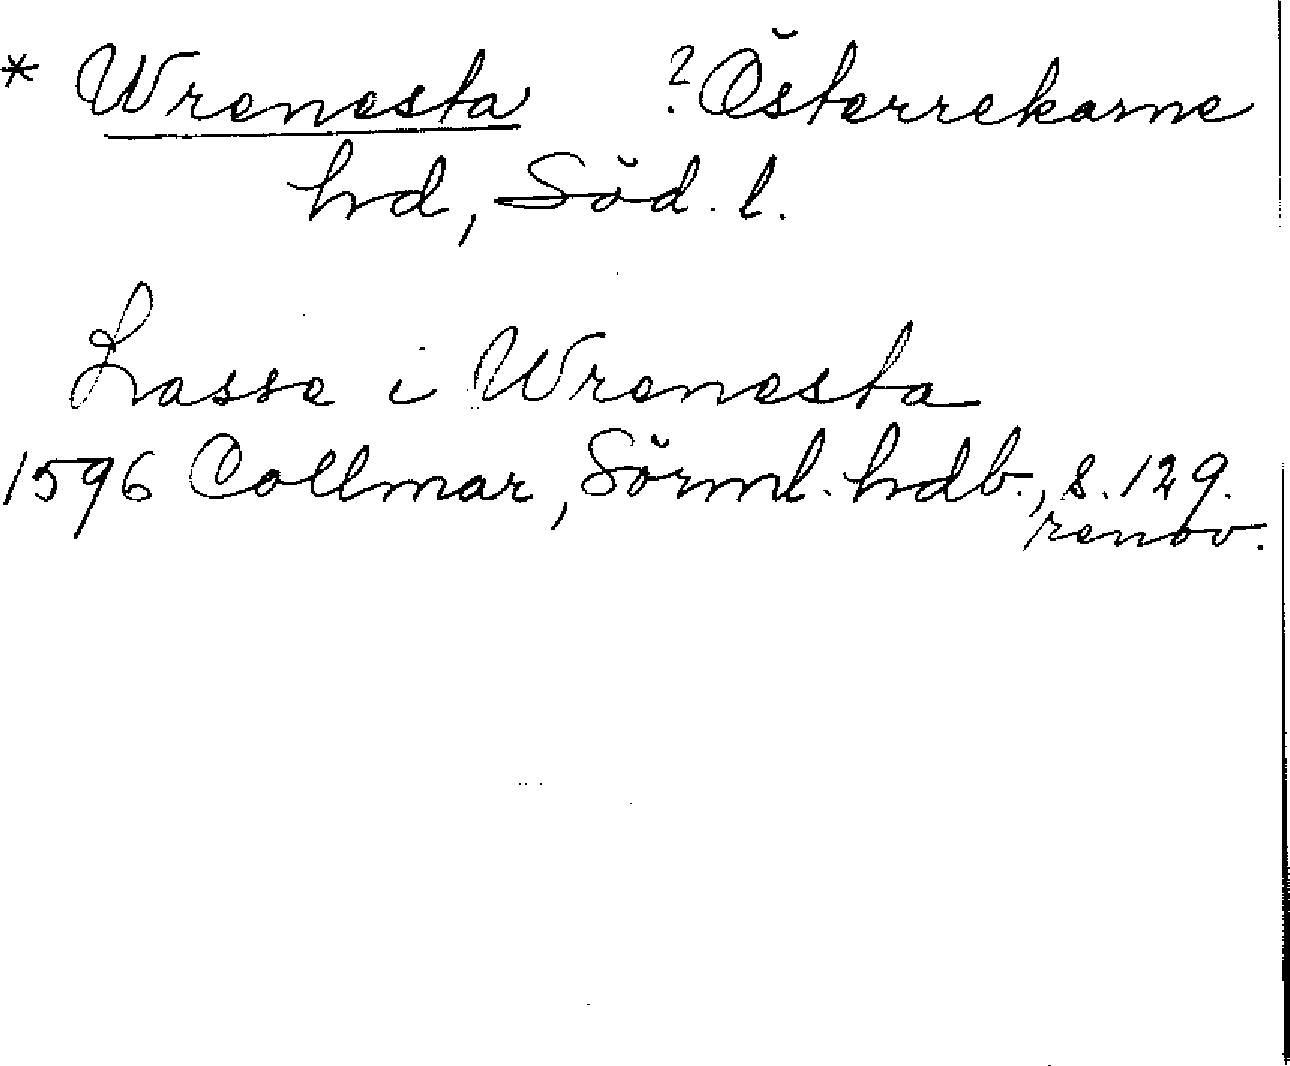 * Wrenesta ? Österrekarne
hrd, Söd. l.
Lasse i Wrenesta
1596 Collmar, Sörml. hrdb., s. 129.
renov.